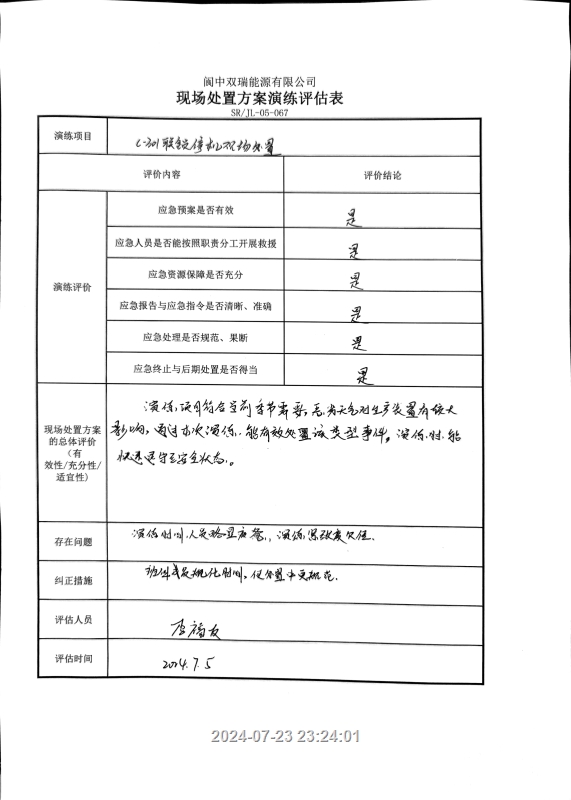 阆中双瑞能源有限公司
现场处置方案演练评估表
SR/JL-05-067
演练项目 C-301联锁停机现场处置
评价内容 评价结论
演练评价
应急预案是否有效 是
应急人员是否能按照职责分工开展救援 是
应急资源保障是否充分 是
应急报告与应急指令是否清晰、准确 是
应急处理是否规范、果断 是
应急终止与后期处置是否得当 是
现场处置方案
的总体评价
(有
效性/充分性/
适宜性)
演练项目符合当前季节需要,天气对生产装置有较大
影响,通过本次演练,能有效处置该类型事件。演练时,能
快速退守至安全状态。
存在问题 演练时间,人员略显,演练紧张度欠佳.
纠正措施 班组,处置中更规范.
评估人员
评估时间 2024.7.5
2024-07-23 23:24:01